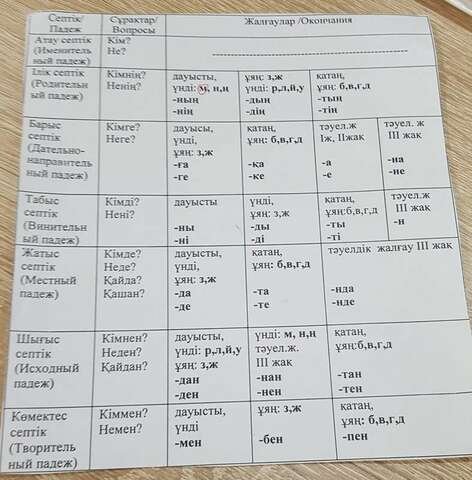 Септік/ Сұрақтар/ Жалғаулар /Окончания
Падеж Вопросы
Атау септік Кім?
(Именитель Не? ------------------------------------------------
ный падеж)
Ілік септік Кімнің? дауысты, ұяң: з,ж қатаң,
(Родительн Ненің? үнді: м, н,ң үнді: р,л,й,у ұяң: б,в,г,д
ый падеж) -ның -дың -тың
-нің -дің -тің
Барыс Кімге? дауысы, қатаң, тәуел.ж тәуел.ж
септік Неге? үнді, ұяң: б,в,г,д Іж, ІІжақ ІІІ жақ
(Дательно- ұяң: з,ж
направитель -ға -қа -а -на
ный падеж) -ге -ке -е -не
Табыс Кімді? дауысты үнді, қатаң, тәуел.ж
септік Нені? ұяң: з,ж ұяң:б,в,г,д ІІІ жақ
(Винительн -ны -ды -ты -н
ый падеж) -ні -ді -ті
Жатыс Кімде? дауысты, қатаң, тәуелдік жалғау ІІІ жақ
септік Неде? үнді, ұяң: б,в,г,д
(Местный Қайда? ұяң: з,ж
падеж) Қашан? -да -та -нда
-де -те -нде
Шығыс Кімнен? дауысты, үнді: м, н,ң қатаң,
септік Неден? үнді: р,л,й,у тәуел.ж. ұяң:б,в,г,д
(Исходный Қайдан? ұяң: з,ж ІІІ жақ
падеж) -дан -нан -тан
-ден -нен -тен
Көмектес Кіммен? дауысты, ұяң: з,ж қатаң,
септік Немен? үнді ұяң: б,в,г,д
(Творитель -мен -бен -пен
ный падеж)